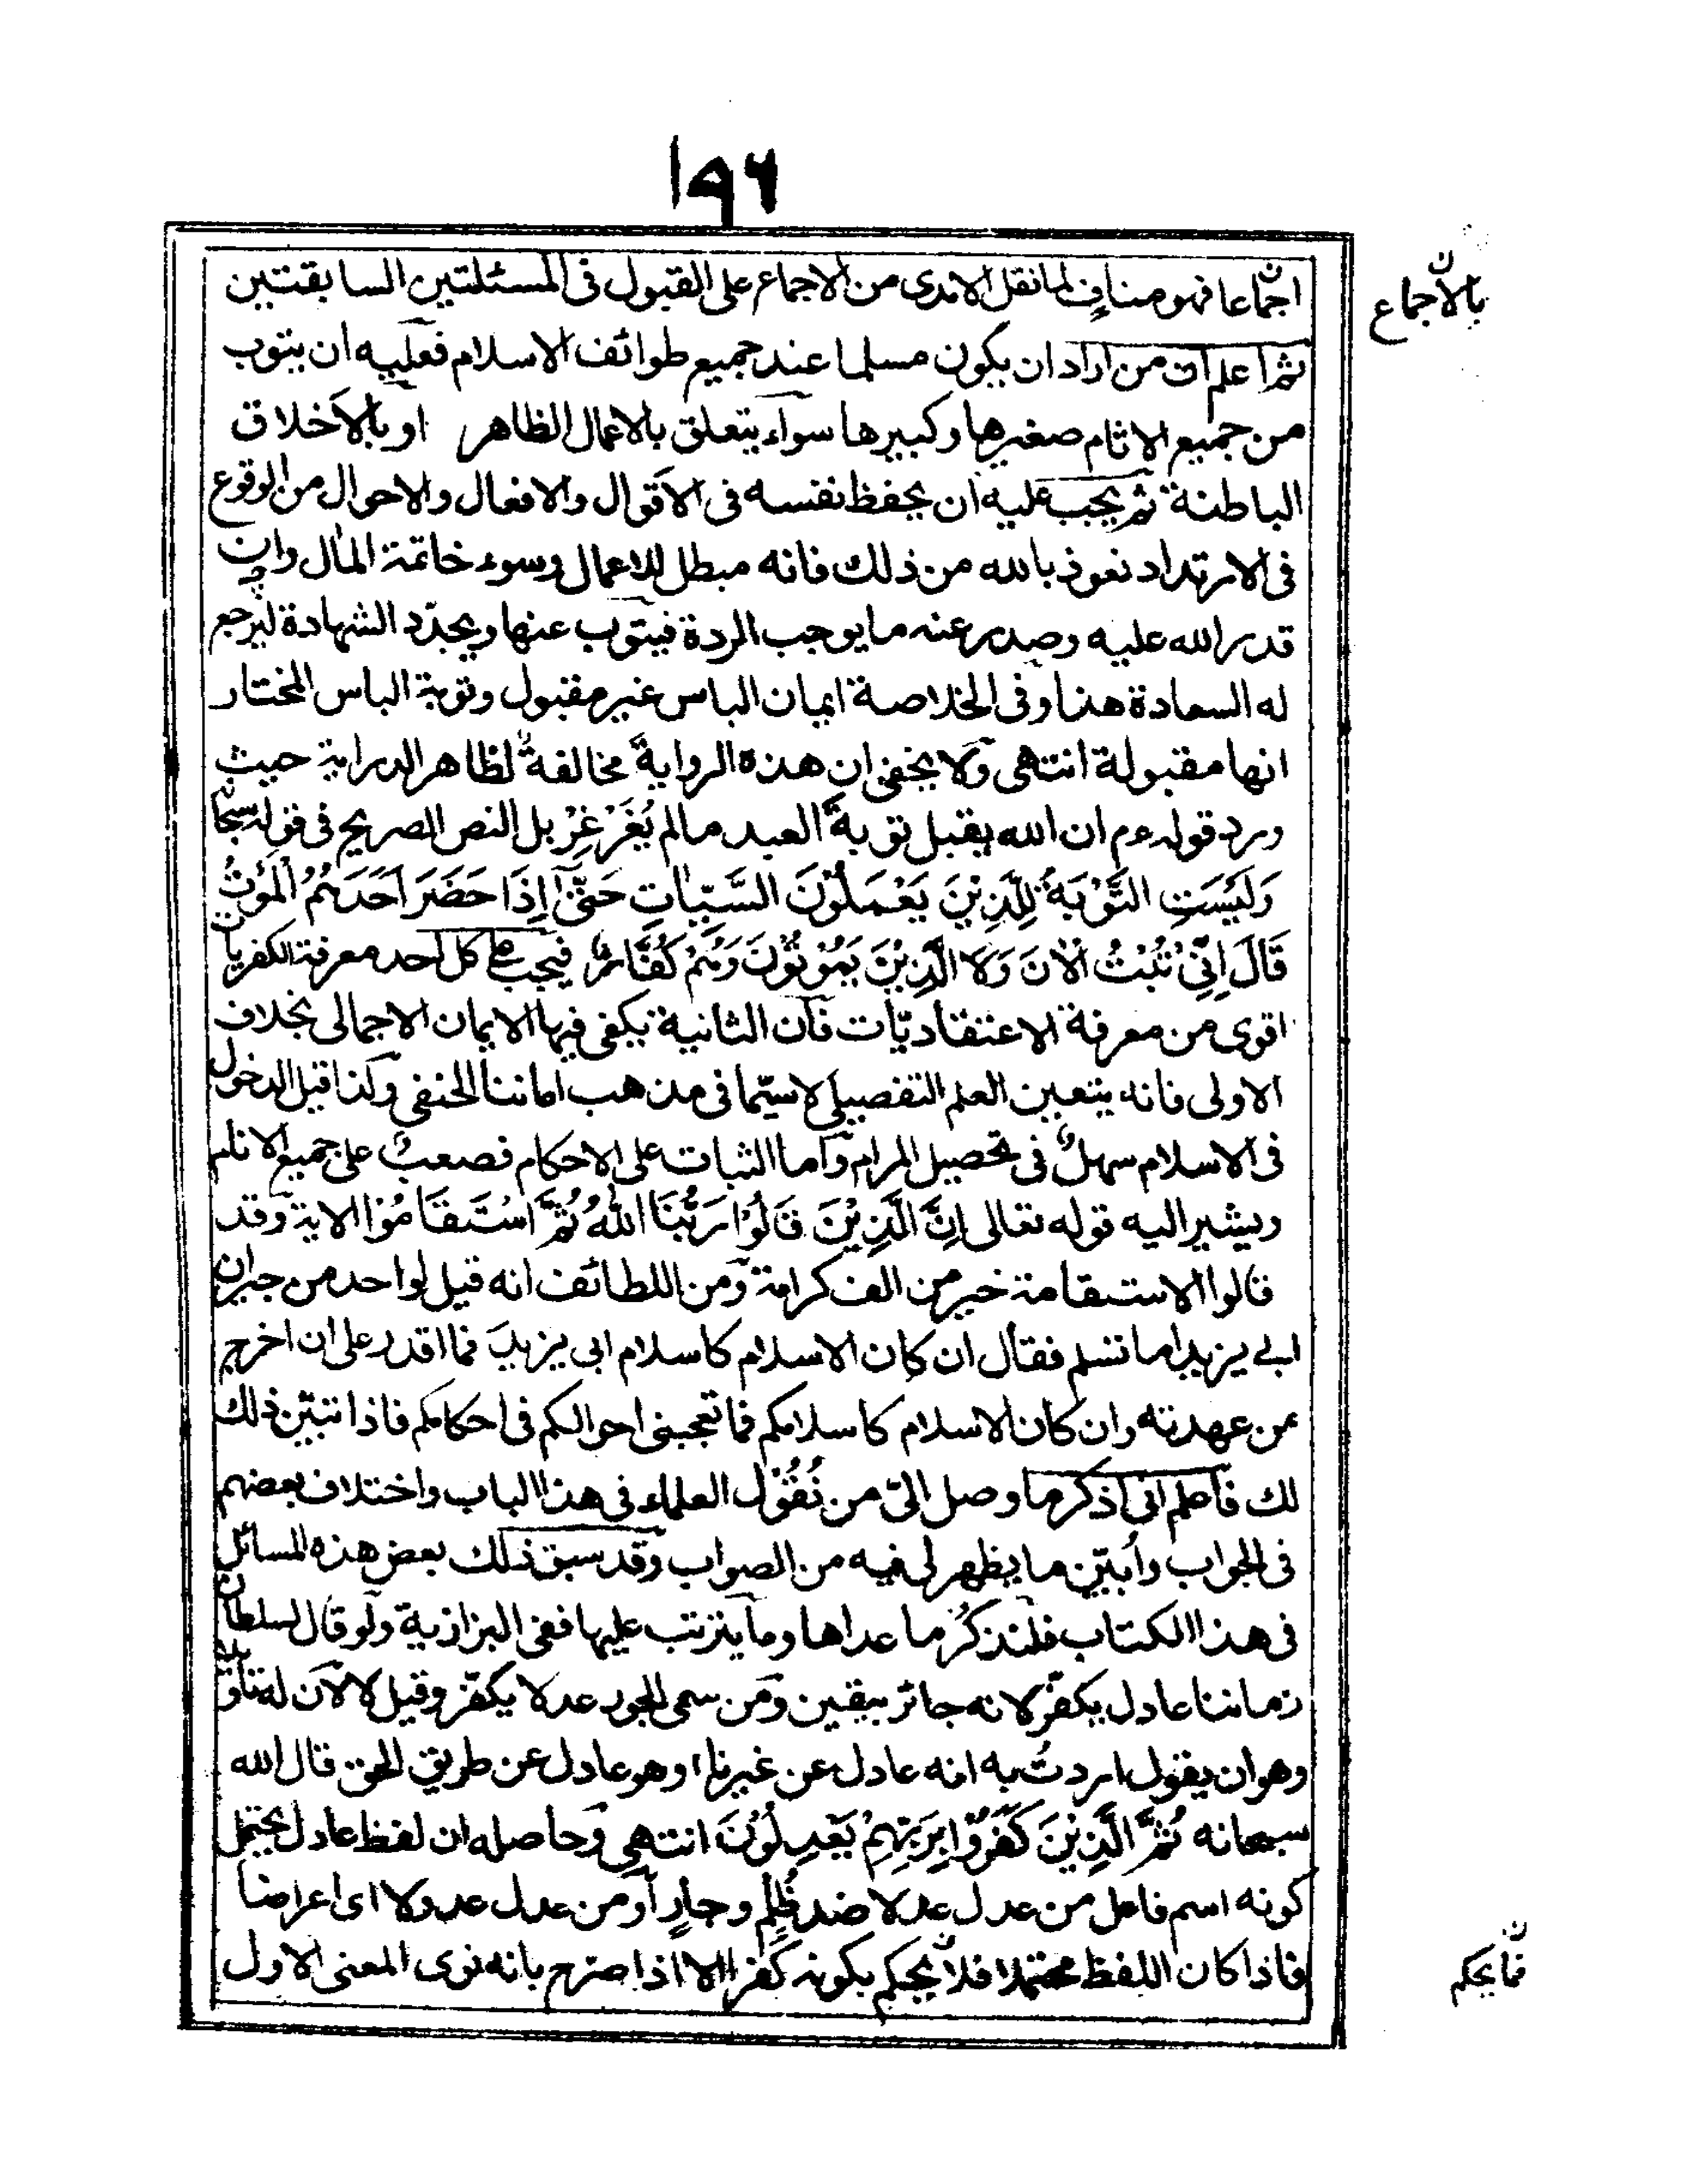 ١٩٦
اجماعا فهو مناف لما نقل الامدى من الاجماع على القبول فى المسئلتين السابقتين
بالاجماع
ثم اعلم ان من اراد ان يكون مسلما عند جميع طوائف الاسلام فعليه ان يتوب
من جميع الاثام صغيرها وكبيرها سواء يتعلق بالاعمال الظاهر او بالاخلاق
الباطنة ثم يجب عليه ان يحفظ نفسه فى الاقوال والافعال والاحوال من الوقوع
فى الارتداد نعوذ بالله من ذلك فانه مبطل للاعمال وسوء خاتمة المال وان
قدر الله عليه وصدر عنه ما يوجب الردة فيتوب عنها ويجدّد الشهادة ليرجع
له السعادة هذا وفى الخلاصة ايمان الباس غير مقبول وتوبة الباس المختار
انها مقبولة انتهى ولا يخفى ان هذه الرواية مخالفةٌ لظاهر الدراية حيث
ورد قوله عم ان الله يقبل توبة العبد مالم يُغَرْغِرْ بل النص الصريح فى قوله سبحانه
وَلَيْسَتِ التَّوْبَةُ لِلَّذِيْنَ يَعْمَلُوْنَ السَّيِّاٰتِ حَتّٰى اِذَا حَضَرَ اَحَدَهُمُ الْمَوْتُ
قَالَ اِنِّىْ تُبْتُ الْاٰنَ وَلَا الَّذِيْنَ يَمُوْتُوْنَ وَهُمْ كُفَّارٌ فيجب على كل احد معرفة الكفريات
اقوى من معرفة الاعتقاديّات فان الثانية يكفى فيها الايمان الاجمالى بخلاف
الاولى فانه يتعين العلم التفصيلى لاسيّما فى مذهب امامنا الحنفى وكذا قيل الدخول
فى الاسلام سهلٌ فى تحصيل المرام واما الثبات على الاحكام فصعبٌ على جميع الانام
ويشير اليه قوله تعالى اِنَّ الَّذِيْنَ قَالُوْا رَبُّنَا اللّٰهُ ثُمَّ اسْتَقَامُوْا الاية وقد
قالوا الاستقامة خير من الف كرامة ومن اللطائف انه قيل لواحد من جيران
ابى يزيد اما تسلم فقال ان كان الاسلام كاسلام ابى يزيد فما اقدر على ان اخرج
عن عهدته وان كان الاسلام كاسلامكم فما تعجبنى احوالكم فى احكامكم فاذا تبيّن ذلك
لك فاعلم انى اذكر ما وصل الىّ من نُقُوْل العلماء فى هذا الباب واختلاف بعضهم
فى الجواب وابيّن ما يظهر لى فيه من الصواب وقد سبق ذلك بعض هذه المسائل
فى هذا الكتاب فلنذكُر ما عداها وما يترتب عليها ففى البزازية ولو قال لسلطان
زماننا عادل يكفّر لانه جائر بيقين ومن سمى الجور عدلا يكفر وقيل لا لان له تاويلا
وهو ان يقول اردتُ به انه عادل عن غيرنا او هو عادل عن طريق الحق قال الله
سبحانه ثُمَّ الَّذِيْنَ كَفَرُوْا بِرَبِّهِمْ يَعْدِلُوْنَ انتهى وحاصله ان لفظ عادل يحتمل
كونه اسم فاعل من عدل عدلا ضد ظُلِمٍ وجارٍ او من عدل عدولا اى اعراضا
فاذا كان اللفظ محتملا فلا يحكم بكونه كفرا الا اذا صرّح بانه نوى المعنى الاول
فما يحكم